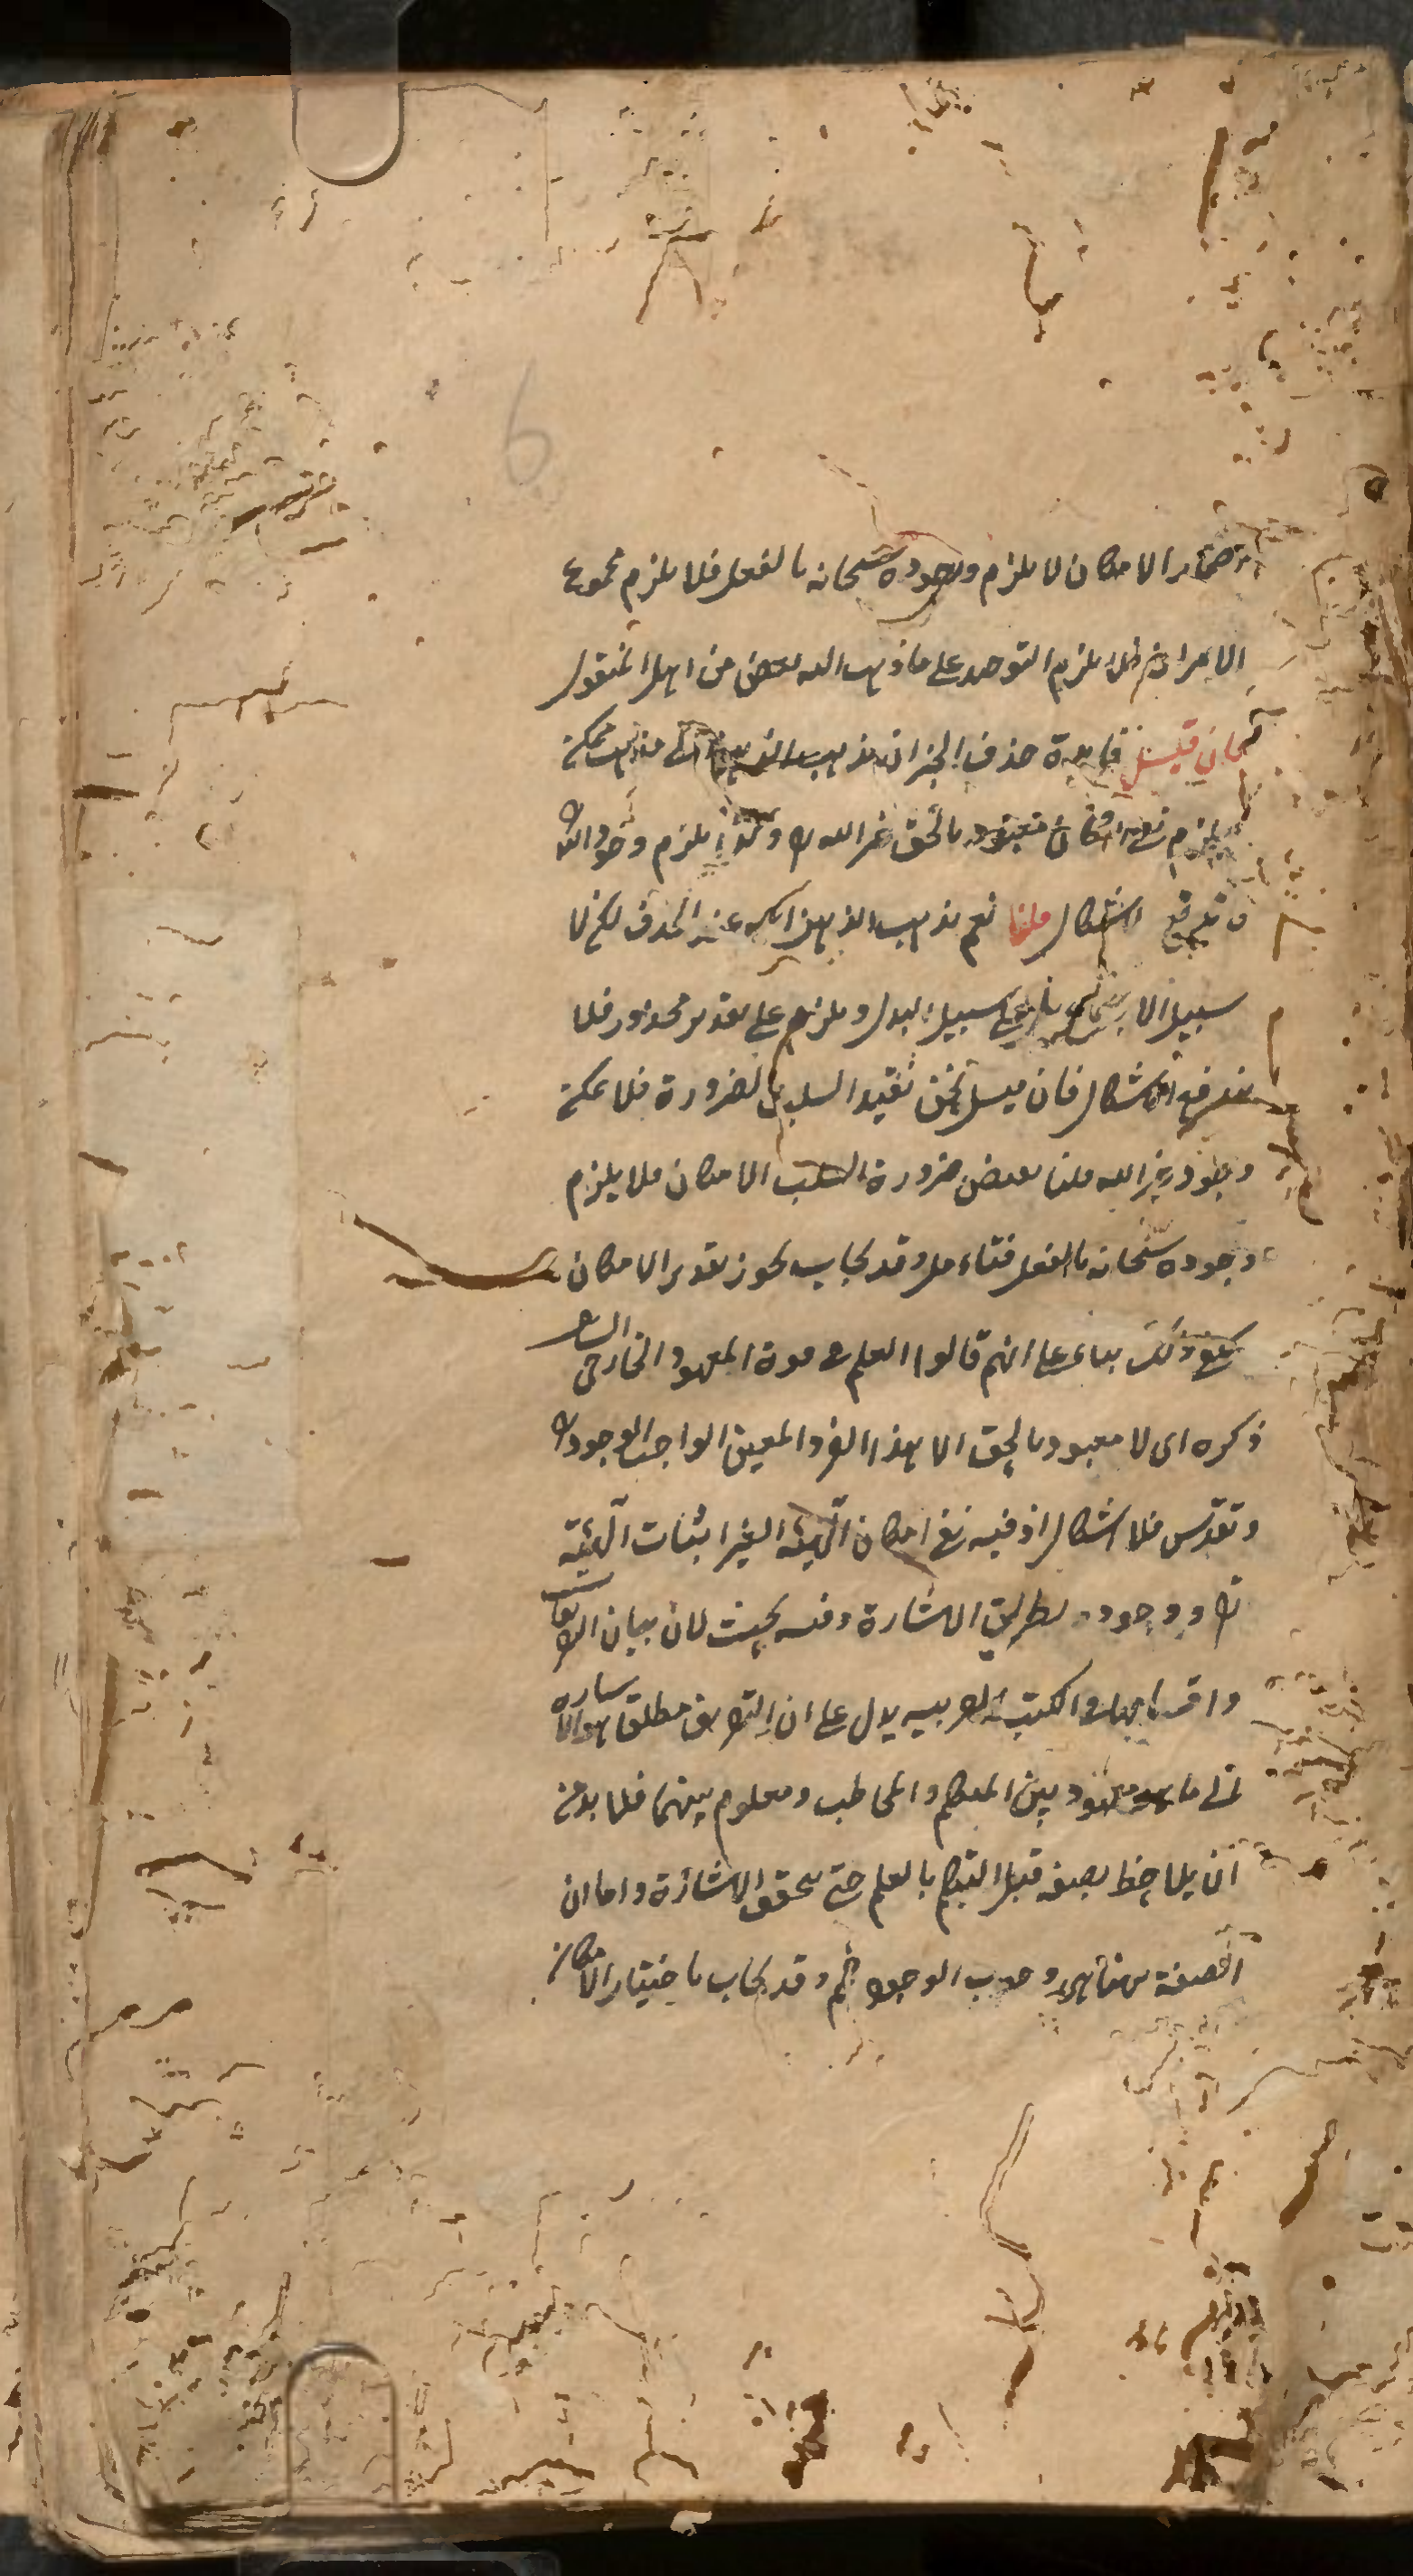 6
الامكان لا يلزم وجوده سبحانه بالفعل فلا يلزم مجموع
الامرين فلا يلزم التوحيد على ما ذهب اليه بعض من اهل المنقول
فان قيل فايدة حذف الخبر ان يذهب الذهن الى ممكن
يلزم نفي امكان معبود بالحق غير الله تع يلزم وجود الله
الاشكال قلنا نعم يذهب الذهن اليه عند الحذف لكن لا
سبيل الا على سبيل البدل ويلزم على تقدير محذور فلا
يندفع الاشكال فان قيل نحن نقيد السلب بالضرورة فلا يمكن
وجود غير الله قلنا نقيض ضرورة السلب الامكان فلا يلزم
وجوده سبحانه بالفعل فتامل وقد يجاب بجوز تقدير الامكان
ذلك بناء على انهم قالوا العلم في قوة المعهود الخارجي
ذكره اى لا معبود بالحق الا هذا الفرد المعين الواجب الوجود
وتقدس فلا اشكال اذ فيه نفي امكان الوهية الغير اثبات الوهية
تع ووجوده بطريق الاشارة وفيه بحث لان بيان
واقسامها في الكتب العربية يدل على ان التعريف مطلقا هو الاشارة
الى ما هو معهود بين المتكلم والمخاطب ومعلوم بينهما فلا بد من
ان يلاحظ بصفة قبل التكلم بالعلم حتى يتحقق الاشارة واما ان
الصفة ههنا هى وجوب الوجود ثم وقد يجاب باختيار الامكان